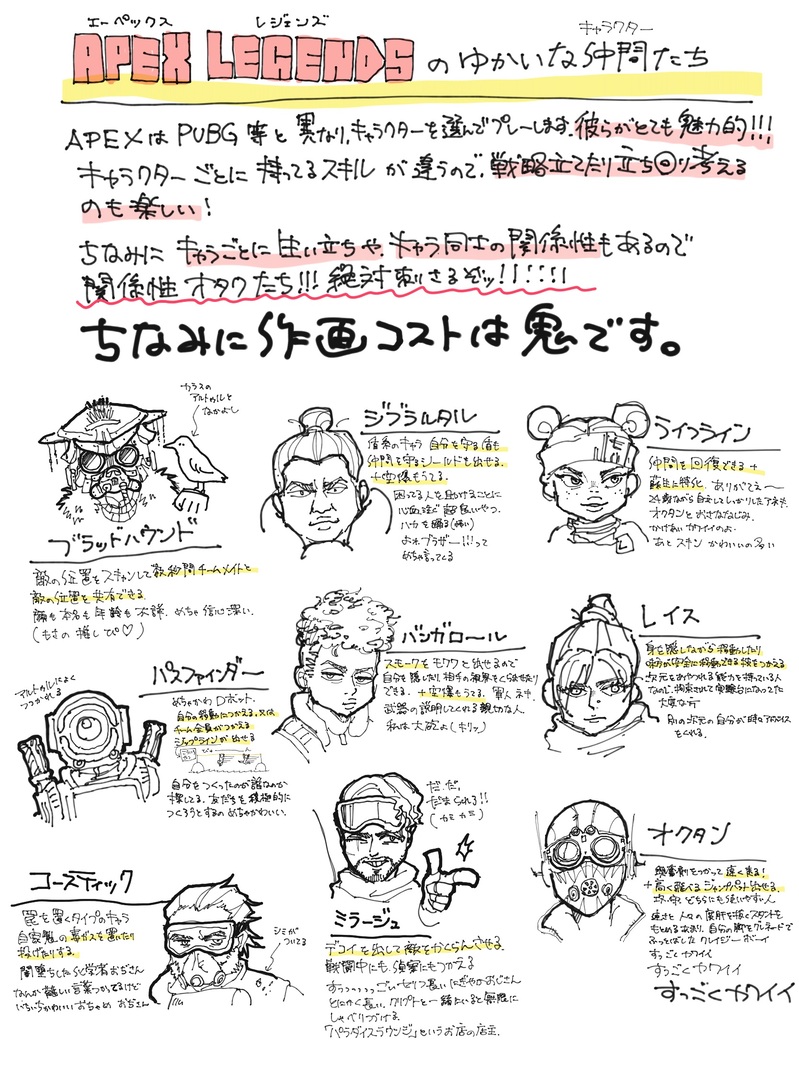 エーペックス レジェンズ
APEX LEGENDS のゆかいな仲間たち
キャラクター
APEXは PUBG 等と 異なり、キャラクターを選んでプレーします。彼らがとても魅力的!!!
キャラクターごとに持ってるスキルが違うので、戦略立てたり立ち回り考える
のも楽しい!
ちなみに キャラごとに生い立ちや、キャラ同士の関係性もあるので
関係性オタクたち!!! 絶対刺さるぞッ!!!!!!
ちなみに作画コストは鬼です。
カラスの
アルトゥルと
なかよし
ブラッドハウンド
敵の位置をスキャンして数秒間チームメイトと
敵の位置を共有できる
顔も本名も年齢も不詳。めちゃ信心深い。
(もさの推しぴ♡)
ジブラルタル
盾系のキャラ 自分を守る盾も
仲間を守るシールドも出せる。
+空爆もうてる。
困ってる人を助けることに
心血注ぐ超良いやつ。
ハカを踊る(怖い)
よぉブラザー!!!って
めちゃ言ってくる
ライフライン
仲間を回復できる+
蘇生に特化。ありがてぇ〜
24歳ながら自立してしっかりしたアネキ。
オクタンとおさななじみ。
かけあいがカワイイのよ。
あと スキン かわいいの多い
パスファインダー
アルトゥルによく
つつかれる
めちゃかわロボット。
自分の移動につかえる、又は
チーム全員がつかえる
ジップラインが出せる
自分をつくったのが誰なのか
探してる。友だちを積極的に
つくろうとするのめちゃかわいい。
バンガロール
スモークをモクモクと出せるので
自分を隠したり相手の視界をくらませたり
できる。+空爆もうてる。軍人ネキ
武器の説明してくれる親切な人。
私は大砲よ(キリッ)
レイス
身を隠しながら移動したり
味方が安全に移動できる穴をつかえる
次元をあやつれる能力を持っている人
なので、拘束されて実験台になってた
大変な方
別の次元の自分が時々アドバイス
をくれる。
コースティック
罠を置くタイプのキャラ
自家製の毒ガスを置いたり
投げたりする。
闇堕ちした化学者おぢさん
なんか難しい言葉つかってるけど
いちいちかわいいおちゃめ おぢさん
シミが
ついてる
だ、だ、
だまされる!!
(カミカミ)
ミラージュ
デコイを出して敵をかくらんさせる
戦闘中にも、偵察にもつかえる
すうっっっっっごいセリフ長い にぎやかおじさん
とにかく長い。クリプトと一緒にいると無限に
しゃべりつづける。
「パラダイスラウンジ」というお店の店主。
オクタン
興奮剤をつかって速く走る!
+高く飛べるジャンプパッド出せる。
攻・守 どちらにも使いやすい人
速さと人々の度肝を抜くスタントを
もとめるあまり、自分の脚をグレネードで
ふっとばした クレイジーボーイ
すっごくカワイイ
すっごくカワイイ
すっごくカワイイ